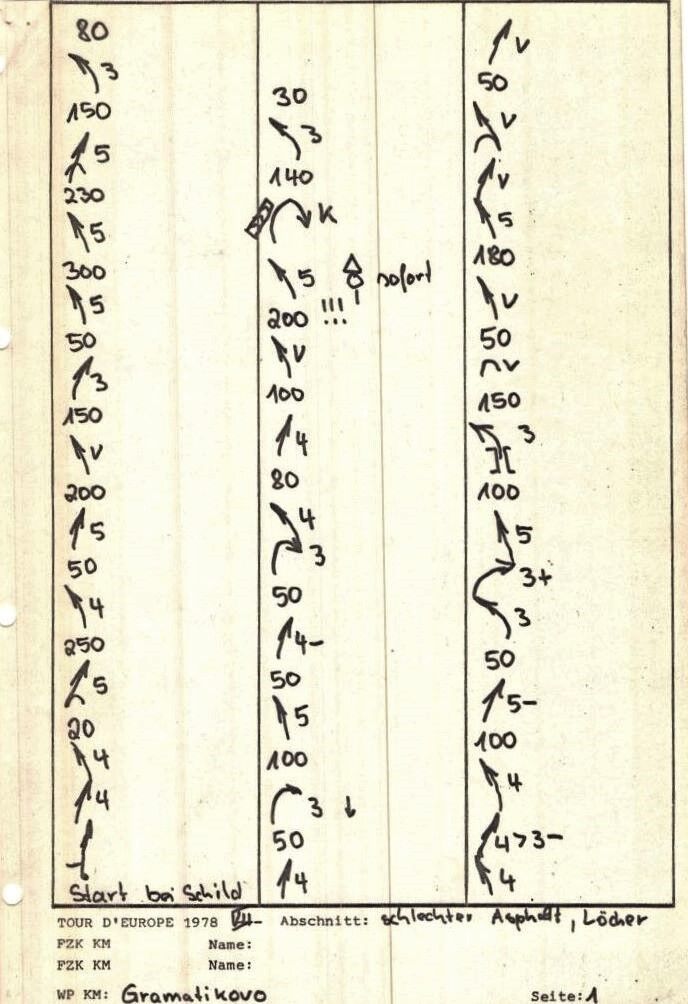 80
3
150
5
230
5
300
5
50
3
150
v
200
5
50
4
250
5
20
4
4
Start bei Schild
30
3
140
K
5 sofort
200 !!!
v
100
4
80
4
3
50
4-
50
5
100
3 ↓
50
4
v
50
v
v
5
180
v
50
v
150
3
100
5
3+
3
50
5-
100
4
4>3-
4
TOUR D'EUROPE 1978 Abschnitt: schlechter Asphalt, Löcher
FZK KM Name:
FZK KM Name:
WP KM: Gramatikovo Seite: 1